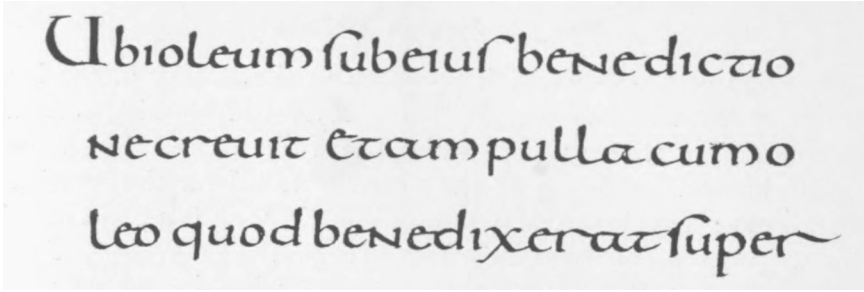 Ubioleum ſubeiuſ benedictio
necreuit Etampulla cumo
leo quod benedixerat ſuper